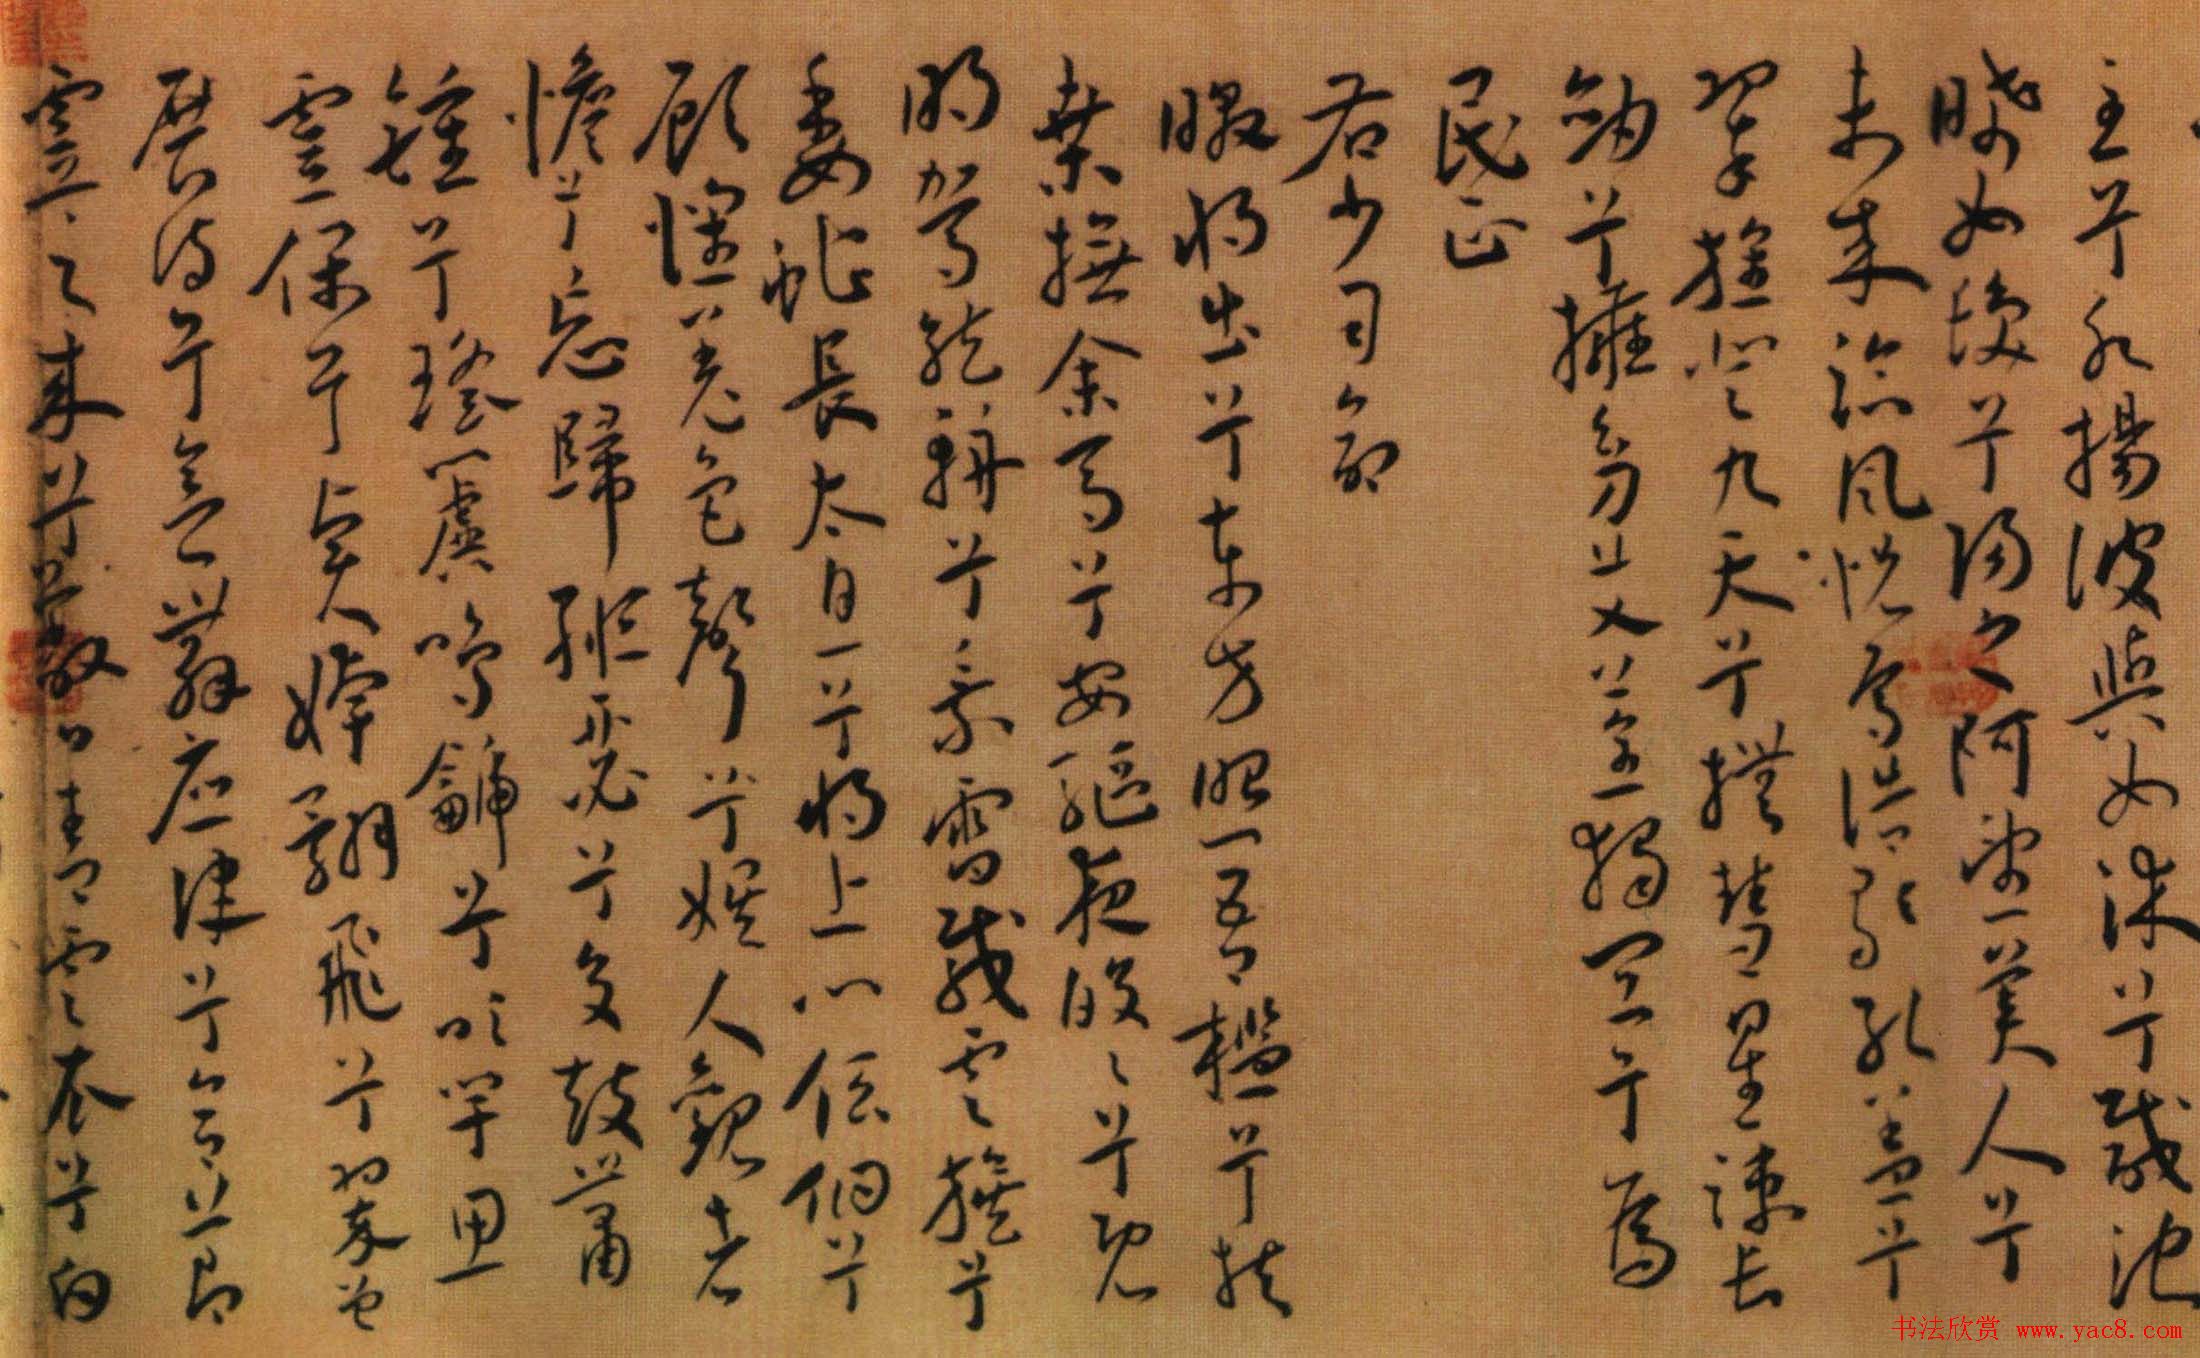 至兮水揚波與女沐兮咸池
晞女髮兮陽之阿望美人兮
未來臨風怳浩歌孔蓋兮
翠旍登九天兮撫彗星竦長
劍兮擁幼艾荃獨宜兮為
民正
右少司命
暾將出兮東方照吾檻兮扶
桑撫余馬兮安驅夜皎皎兮既
明駕龍輈兮乘雷載雲旗兮
委蛇長太息兮將上心低佪兮
顧懷羌色聲兮娛人觀者
憺兮忘歸緪瑟兮交鼓蕭
鍾兮瑤簴鳴䶵兮吹竽思
靈保兮賢姱翾飛兮翠曾
展詩兮會舞應律兮合節
靈之來兮蔽日青雲衣兮白
书法欣赏 www.yac8.com